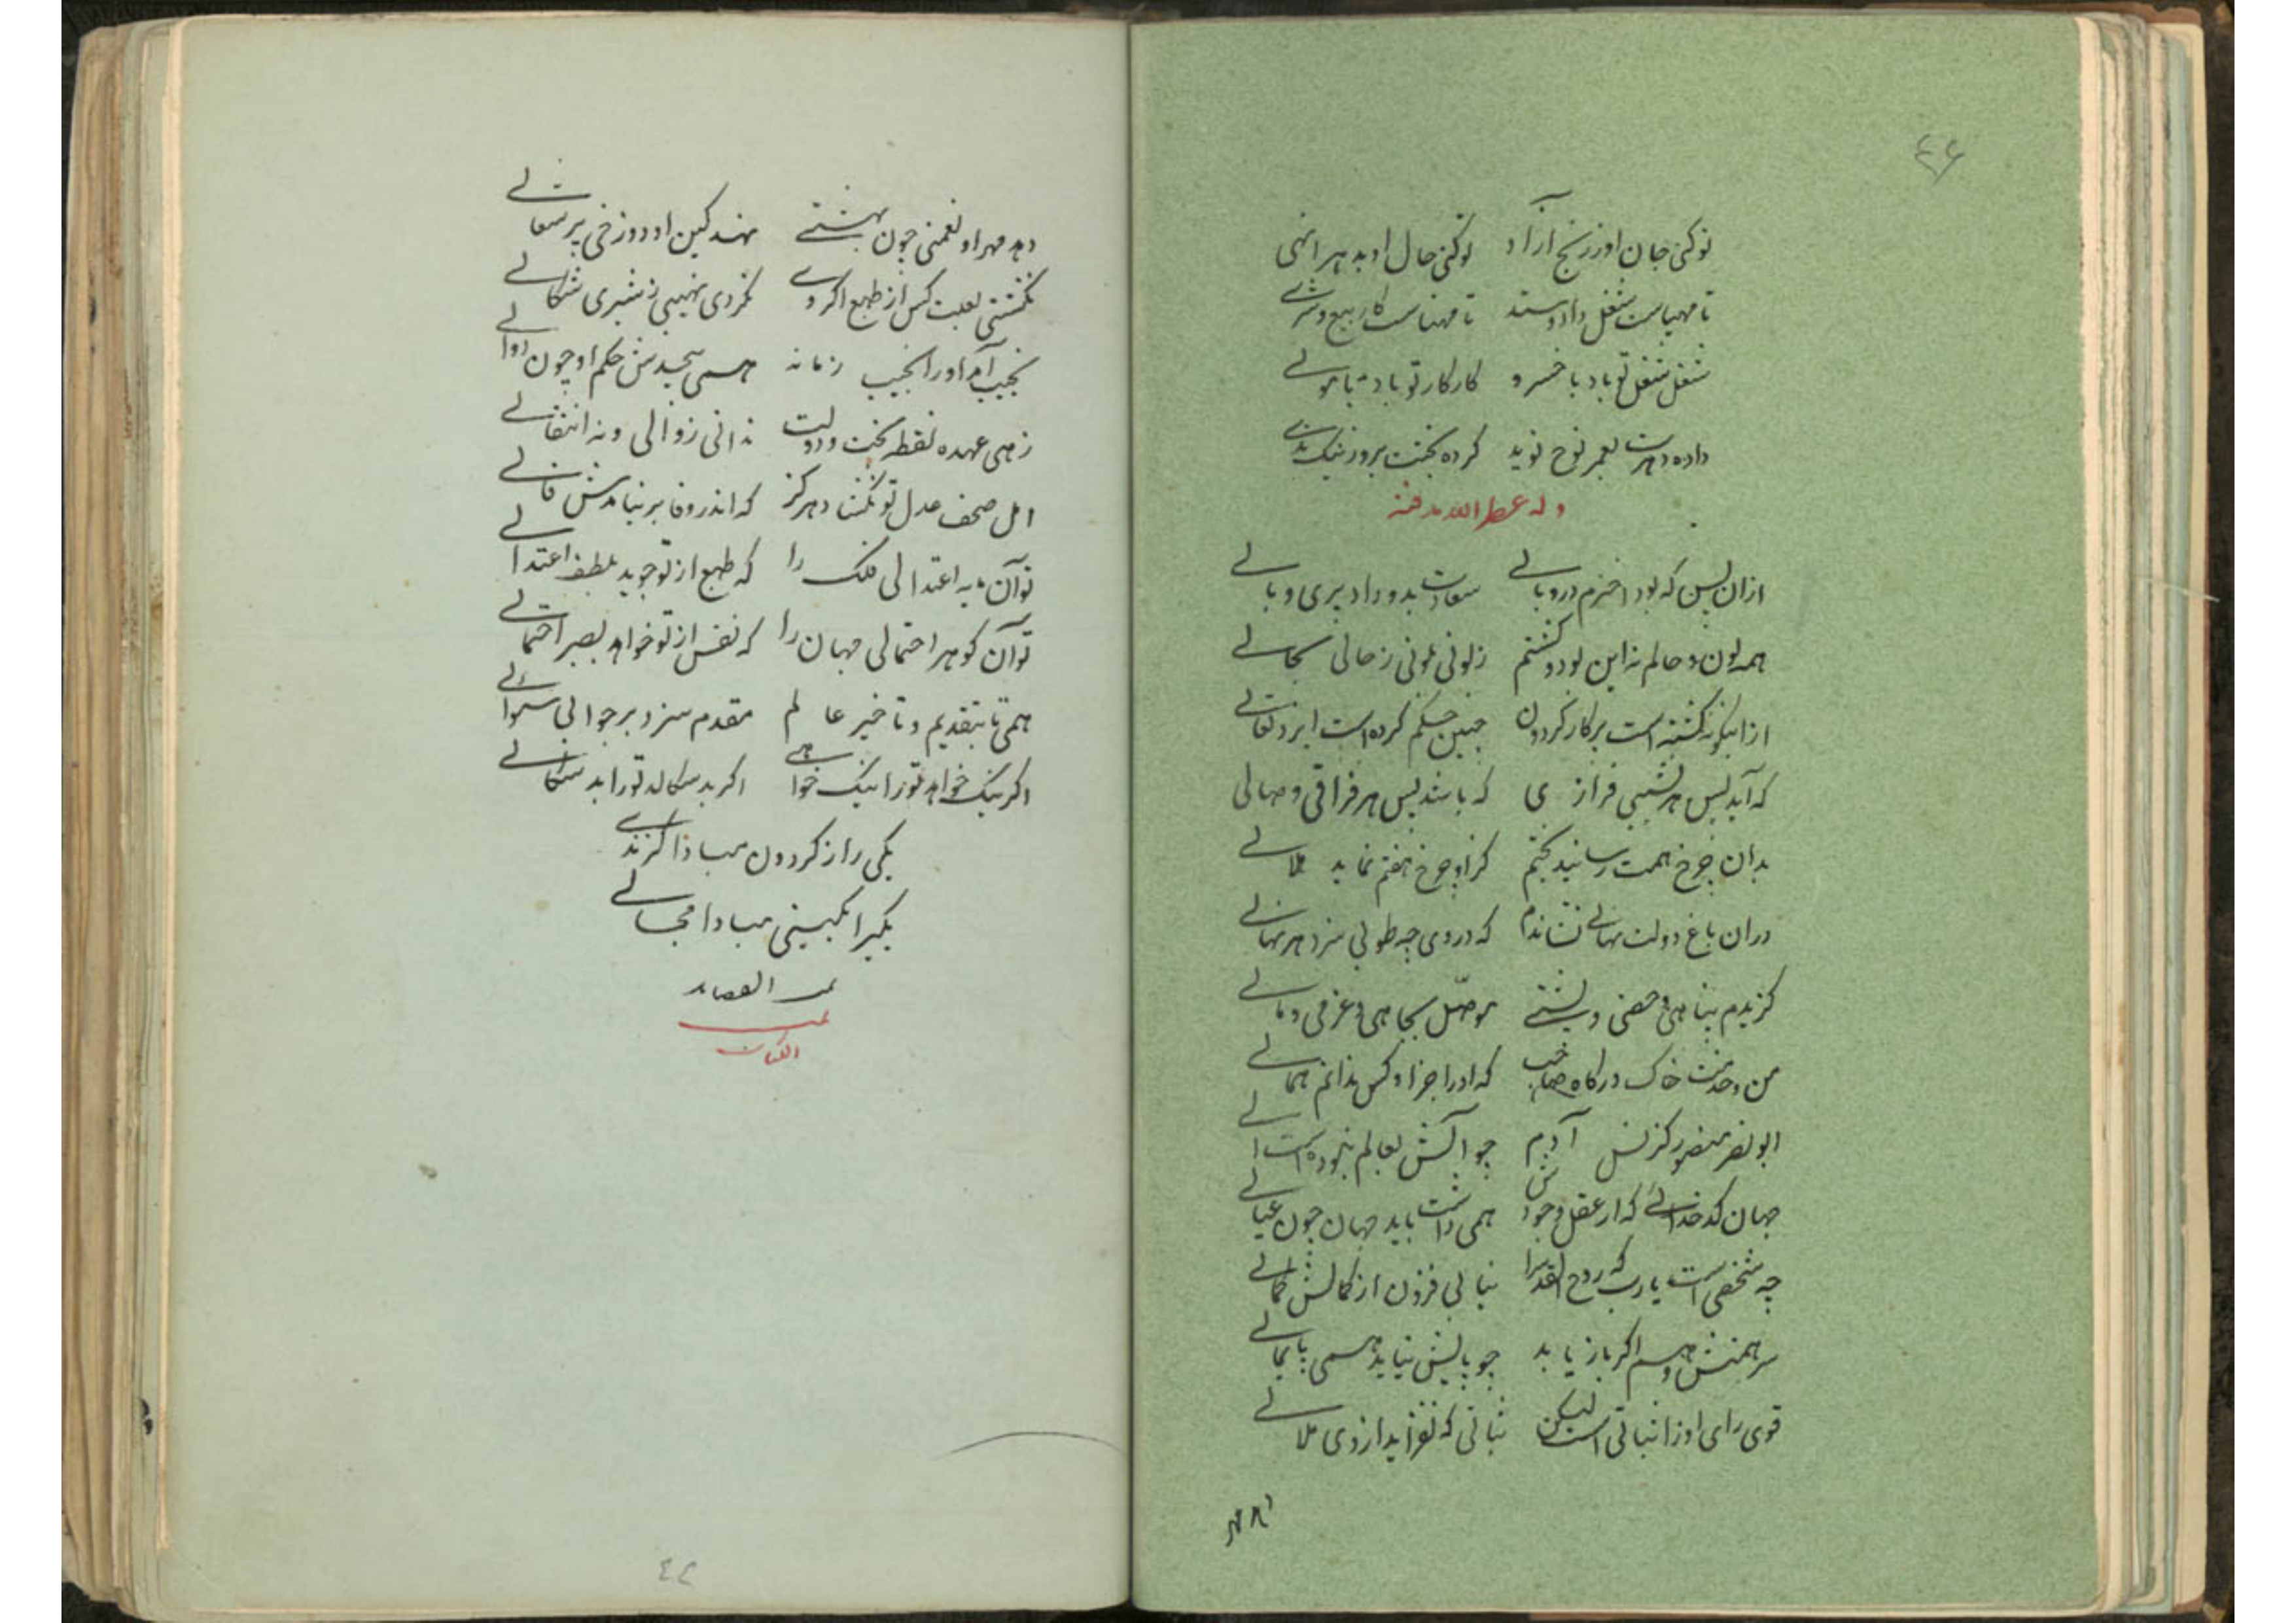 ۴۶
تو کنی جان او ز رنج آزاد تو کنی حال او بدهر انهی
تا مهیاست شغل داد و ستد تا مهناست کار بیع و شری
شغل شغل تو باد با خسرو کار کار تو باد با مولی
داده دهرت بعمر نوح نوید کرده بختت بروز نیک ندی
وله عطر الله مرقده
ازان پس که بود اخترم در وبالی سعادت بدو داد پری و بالی
همه لون و حالم نه این بود و کشتم ز لونی بلونی ز حالی بحالی
ازاینگونه کشته است پرکار کردون چنین حکم کرده است ایزد تعالی
که آید پس هر نشیبی فرازی که باشد پس هر فراقی وصالی
بدان چرخ همت رسانید بختم کزاو چرخ هفتم نماید هلالی
دران باغ دولت نهالی نشاندم که در وی چه طوبی سزد هر نهالی
کزیدم پناهی و حصنی و پشتی موصل بجاهی و عزی و مالی
من و خدمت خاک درکاه صاحب که او را جز او کس ندانم همالی
ابو نصر منصور کز نسل آدم چو آلش بعالم نبوده است آلی
جهان کدخدائی که از عقل و جودش همی داشت باید جهان چون عیالی
چه شخص است یارب که روح القدس را نیابی فزون از کمالش کمالی
سر همتش وهم اگر باز یابد چو پایش نیابد همی پایمالی
قوی رای او را ثباتی است لیکن ثباتی که نفزاید از وی ملالی
دهد مهر
دهد مهر او نعمتی چون بهشتی نهد کین او دوزخی پر سعالی
نکشتی بعبت کس از طبع اگر وی نکردی نهیبی ز شیری شکالی
نجیب آمد او را نجیب زمانه همی پیچدش حکم او چون دوالی
زهی عهده نقطه بخت و دولت ندانی زوالی و نه انتقالی
امل صحف عدل تو نکشاد هرکز که اندر وفا بر نیامدش فالی
تو آن مایه اعتدالی فلک را که طبع از تو جوید بلطف اعتدالی
تو آن کوهر احتمالی جهان را که نفس از تو خواهد بصبر احتمالی
همی تا بتقدیم و تاخیر عالم مقدم سزد بر جوابی سئوالی
اکر نیک خواهد تو را نیک خواهی اکر بد سکالد تو را بد سکالی
یکی را ز کردون مبادا کزندی
یکیرا بکیتی مبادا مجالی
تمت القصاید
تمت
الکتاب
۴۶